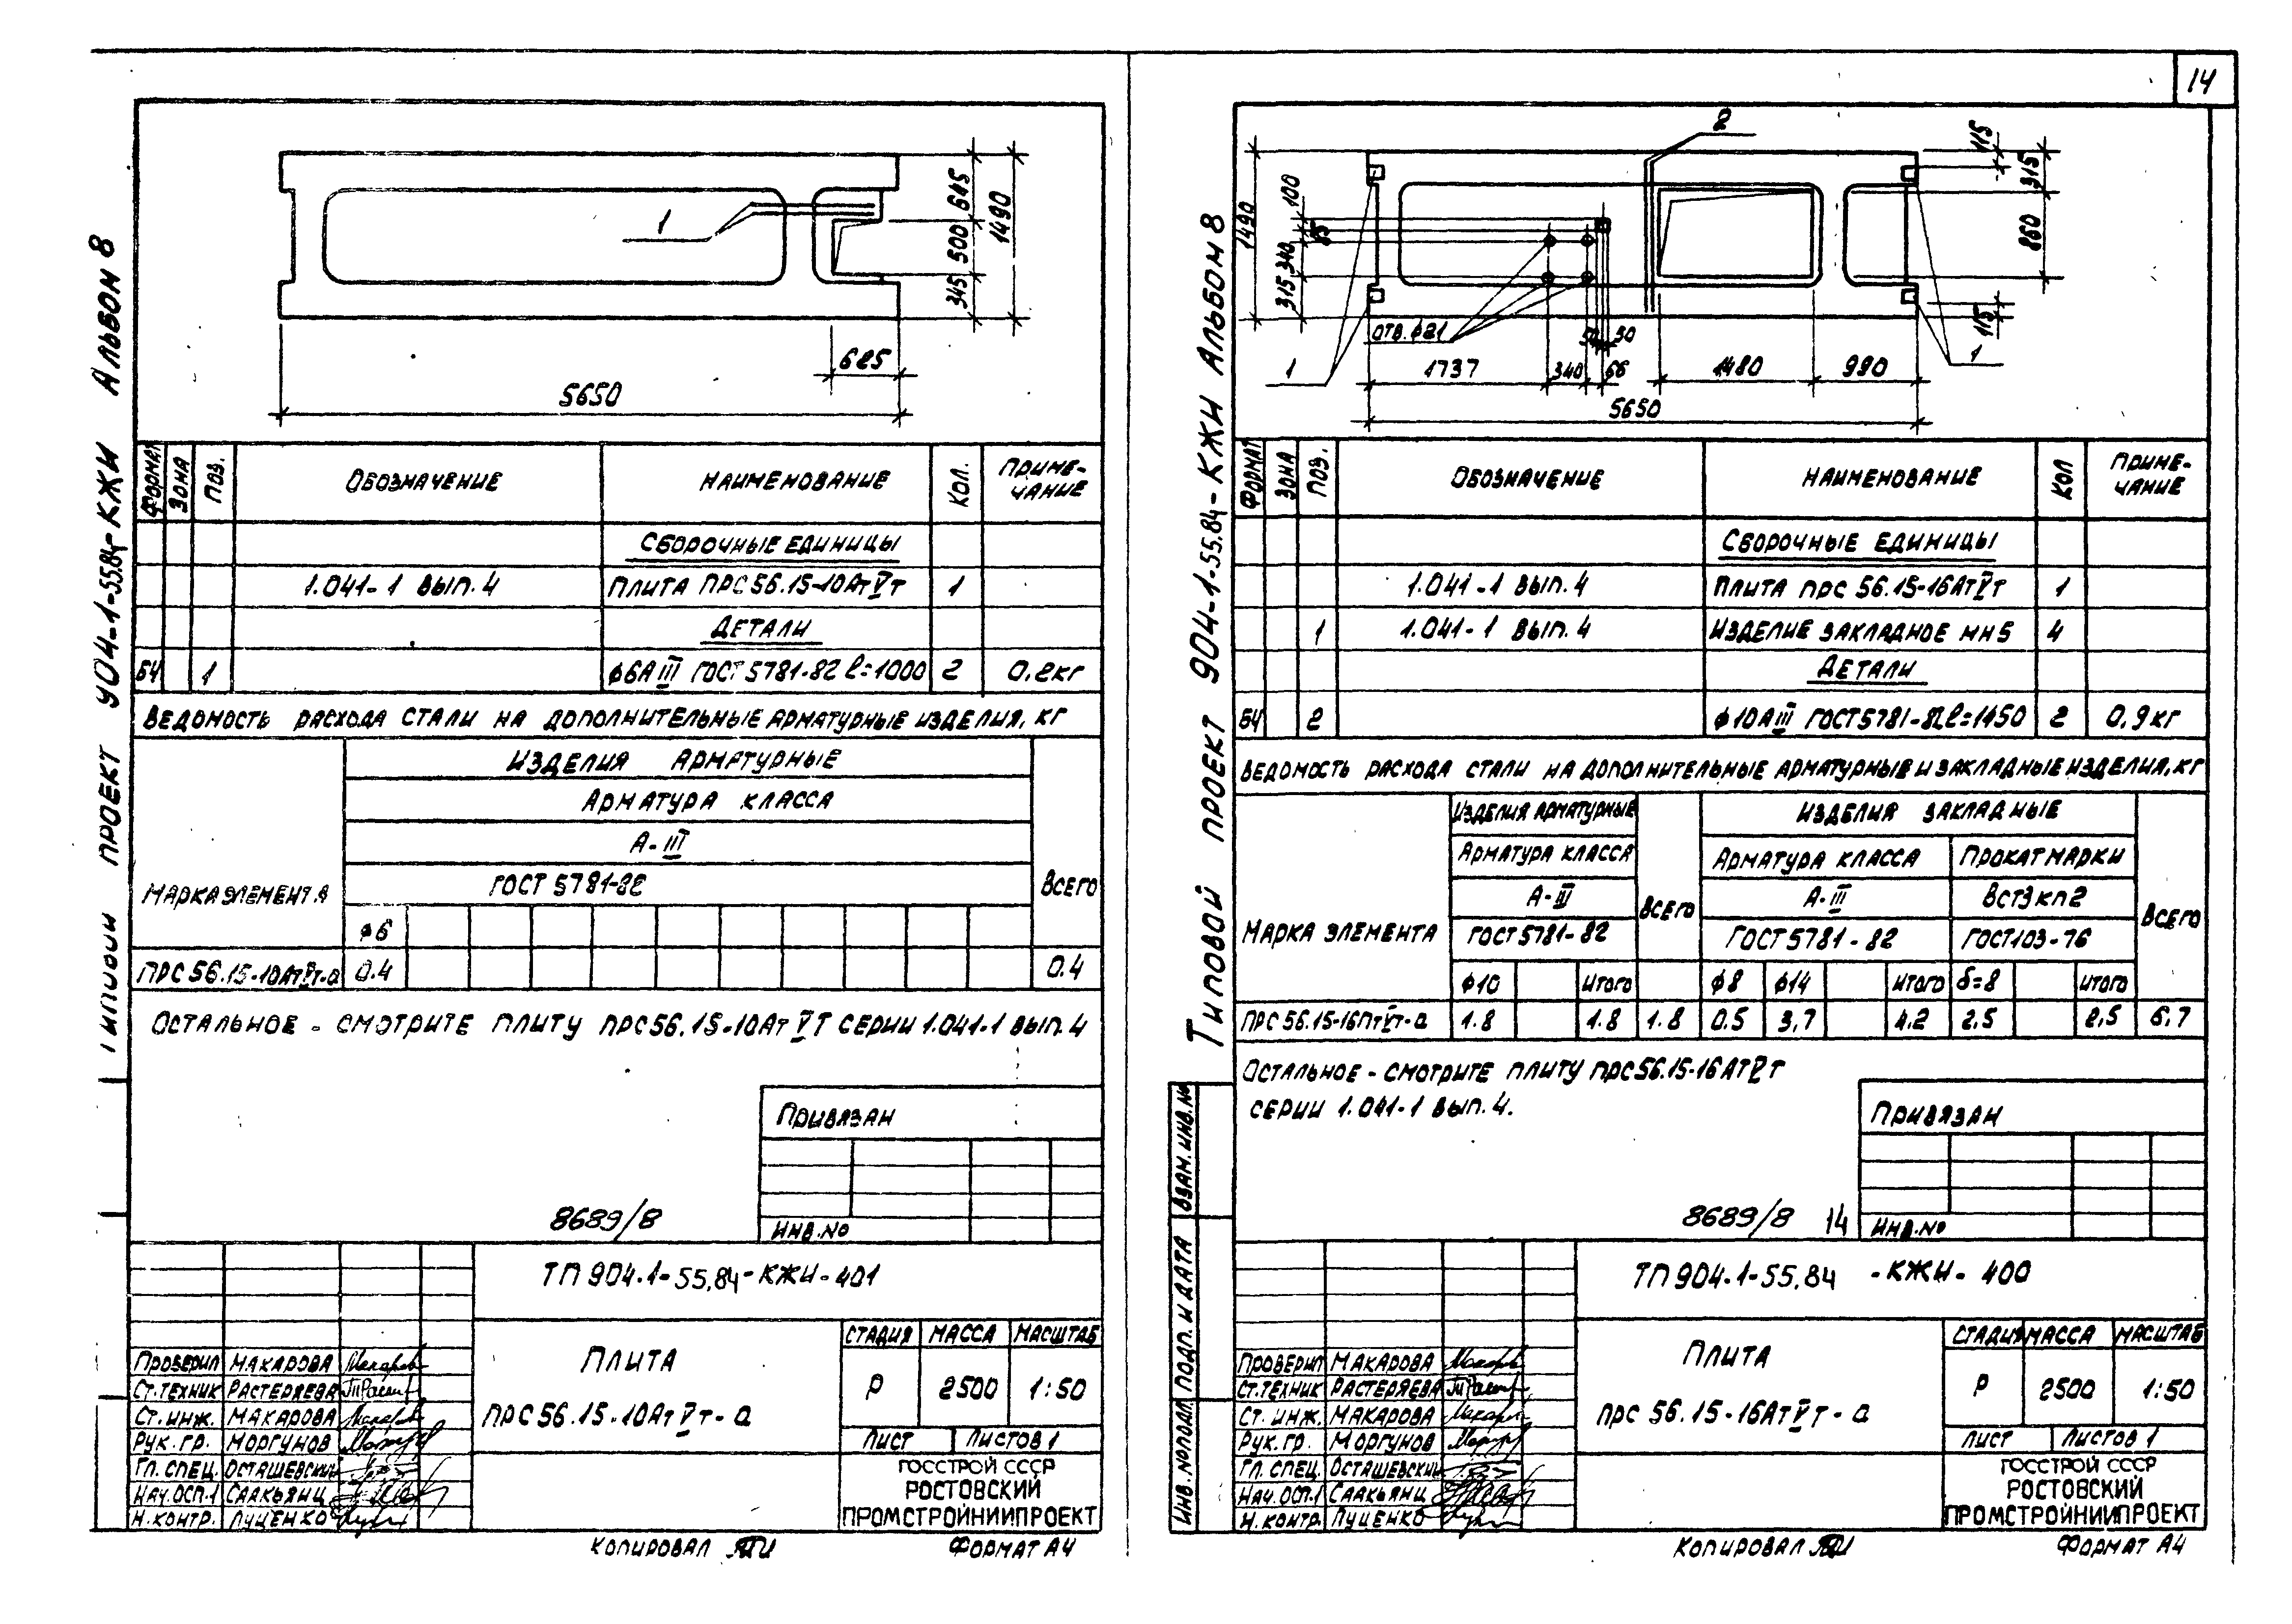 14
Типовой проект 904-1-55.84-КЖИ Альбом 8
645
500
345
1490
1
625
5650
Формат
Зона
Поз.
Обозначение
Наименование
Кол.
Приме-
чание
Сборочные единицы
1.041-1 вып. 4
Плита ПРС 56.15-10АтVт
1
Детали
БЧ
1
ф6АIII ГОСТ 5781-82 l=1000
2
0,2кг
Ведомость расхода стали на дополнительные арматурные изделия, кг
Марка элемента
Изделия арматурные
Арматура класса
А-III
ГОСТ 5781-82
ф6
Всего
ПРС 56.15-10АтVт-а
0.4
0.4
Остальное - смотрите плиту ПРС56.15-10АтVт серии 1.041-1 вып. 4
Привязан
Инв.№
8689/8
ТП 904-1-55.84-КЖИ-401
Плита
ПРС 56.15-10АтVт-а
Стадия
Масса
Масштаб
Р
2500
1:50
Лист
Листов 1
ГОССТРОЙ СССР
РОСТОВСКИЙ
ПРОМСТРОЙНИИПРОЕКТ
Проверил Макарова
Ст.техник Растеряева
Ст. инж. Макарова
Рук. гр. Моргунов
Гл. спец. Осташевский
Нач.ОСП-1 Саакьянц
Н. контр. Луценко
Копировал
Формат А4
Типовой проект 904-1-55.84-КЖИ Альбом 8
2
1490
100
85
340
315
отв. ф21
1
1737
340
66
50
50
1480
990
5650
115
315
860
115
1
Формат
Зона
Поз.
Обозначение
Наименование
Кол
Приме-
чание
Сборочные единицы
1.041-1 вып. 4
Плита ПРС 56.15-16АтVт
1
1
1.041-1 вып. 4
Изделие закладное МН5
4
Детали
БЧ
2
ф10АIII ГОСТ 5781-82 l=1450
2
0,9кг
Ведомость расхода стали на дополнительные арматурные и закладные изделия, кг
Марка элемента
Изделия арматурные
Арматура класса
А-III
ГОСТ 5781-82
ф10
Итого
Всего
Изделия закладные
Арматура класса
А-III
ГОСТ 5781-82
ф8
ф14
Итого
Прокат марки
ВСт3кп2
ГОСТ103-76
δ=8
Итого
Всего
ПРС 56.15-16ПтVт-а
1.8
1.8
1.8
0.5
3,7
4.2
2,5
2,5
6,7
Остальное - смотрите плиту ПРС56.15-16АтVт
серии 1.041-1 вып. 4.
Привязан
Инв.№
8689/8 14
ТП 904-1-55.84 -КЖИ- 400
Плита
ПРС 56.15-16АтVт-а
Стадия
Масса
Масштаб
Р
2500
1:50
Лист
Листов 1
ГОССТРОЙ СССР
РОСТОВСКИЙ
ПРОМСТРОЙНИИПРОЕКТ
Проверил Макарова
Ст.техник Растеряева
Ст. инж. Макарова
Рук. гр. Моргунов
Гл. спец. Осташевский
Нач.ОСП-1 Саакьянц
Н. контр. Луценко
Инв. № подл.
Подп. и дата
Взам. инв. №
Копировал
Формат А4